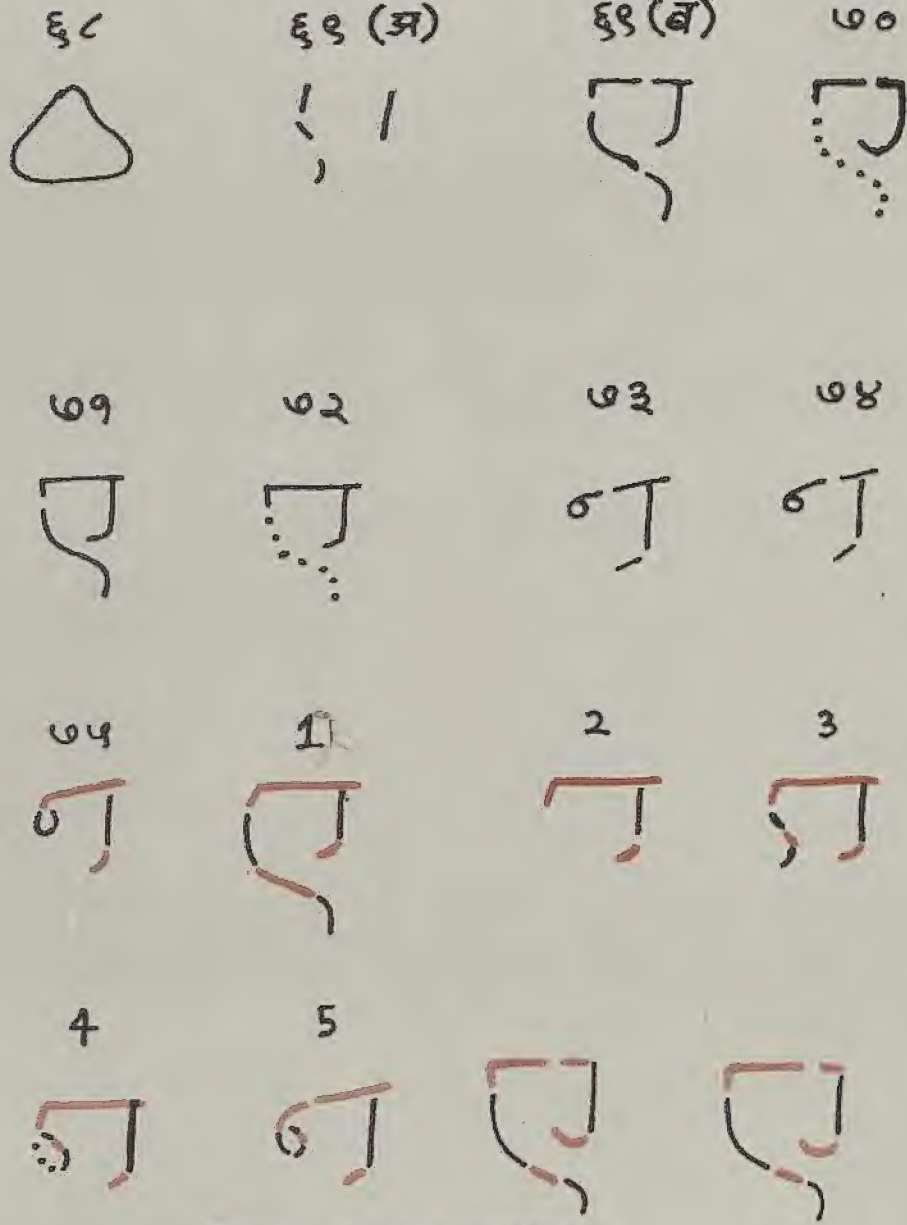 ६८ ६९ (अ) ६९ (ब) ७०
७१ ७२ ७३ ७४
७५ 1 2 3
4 5